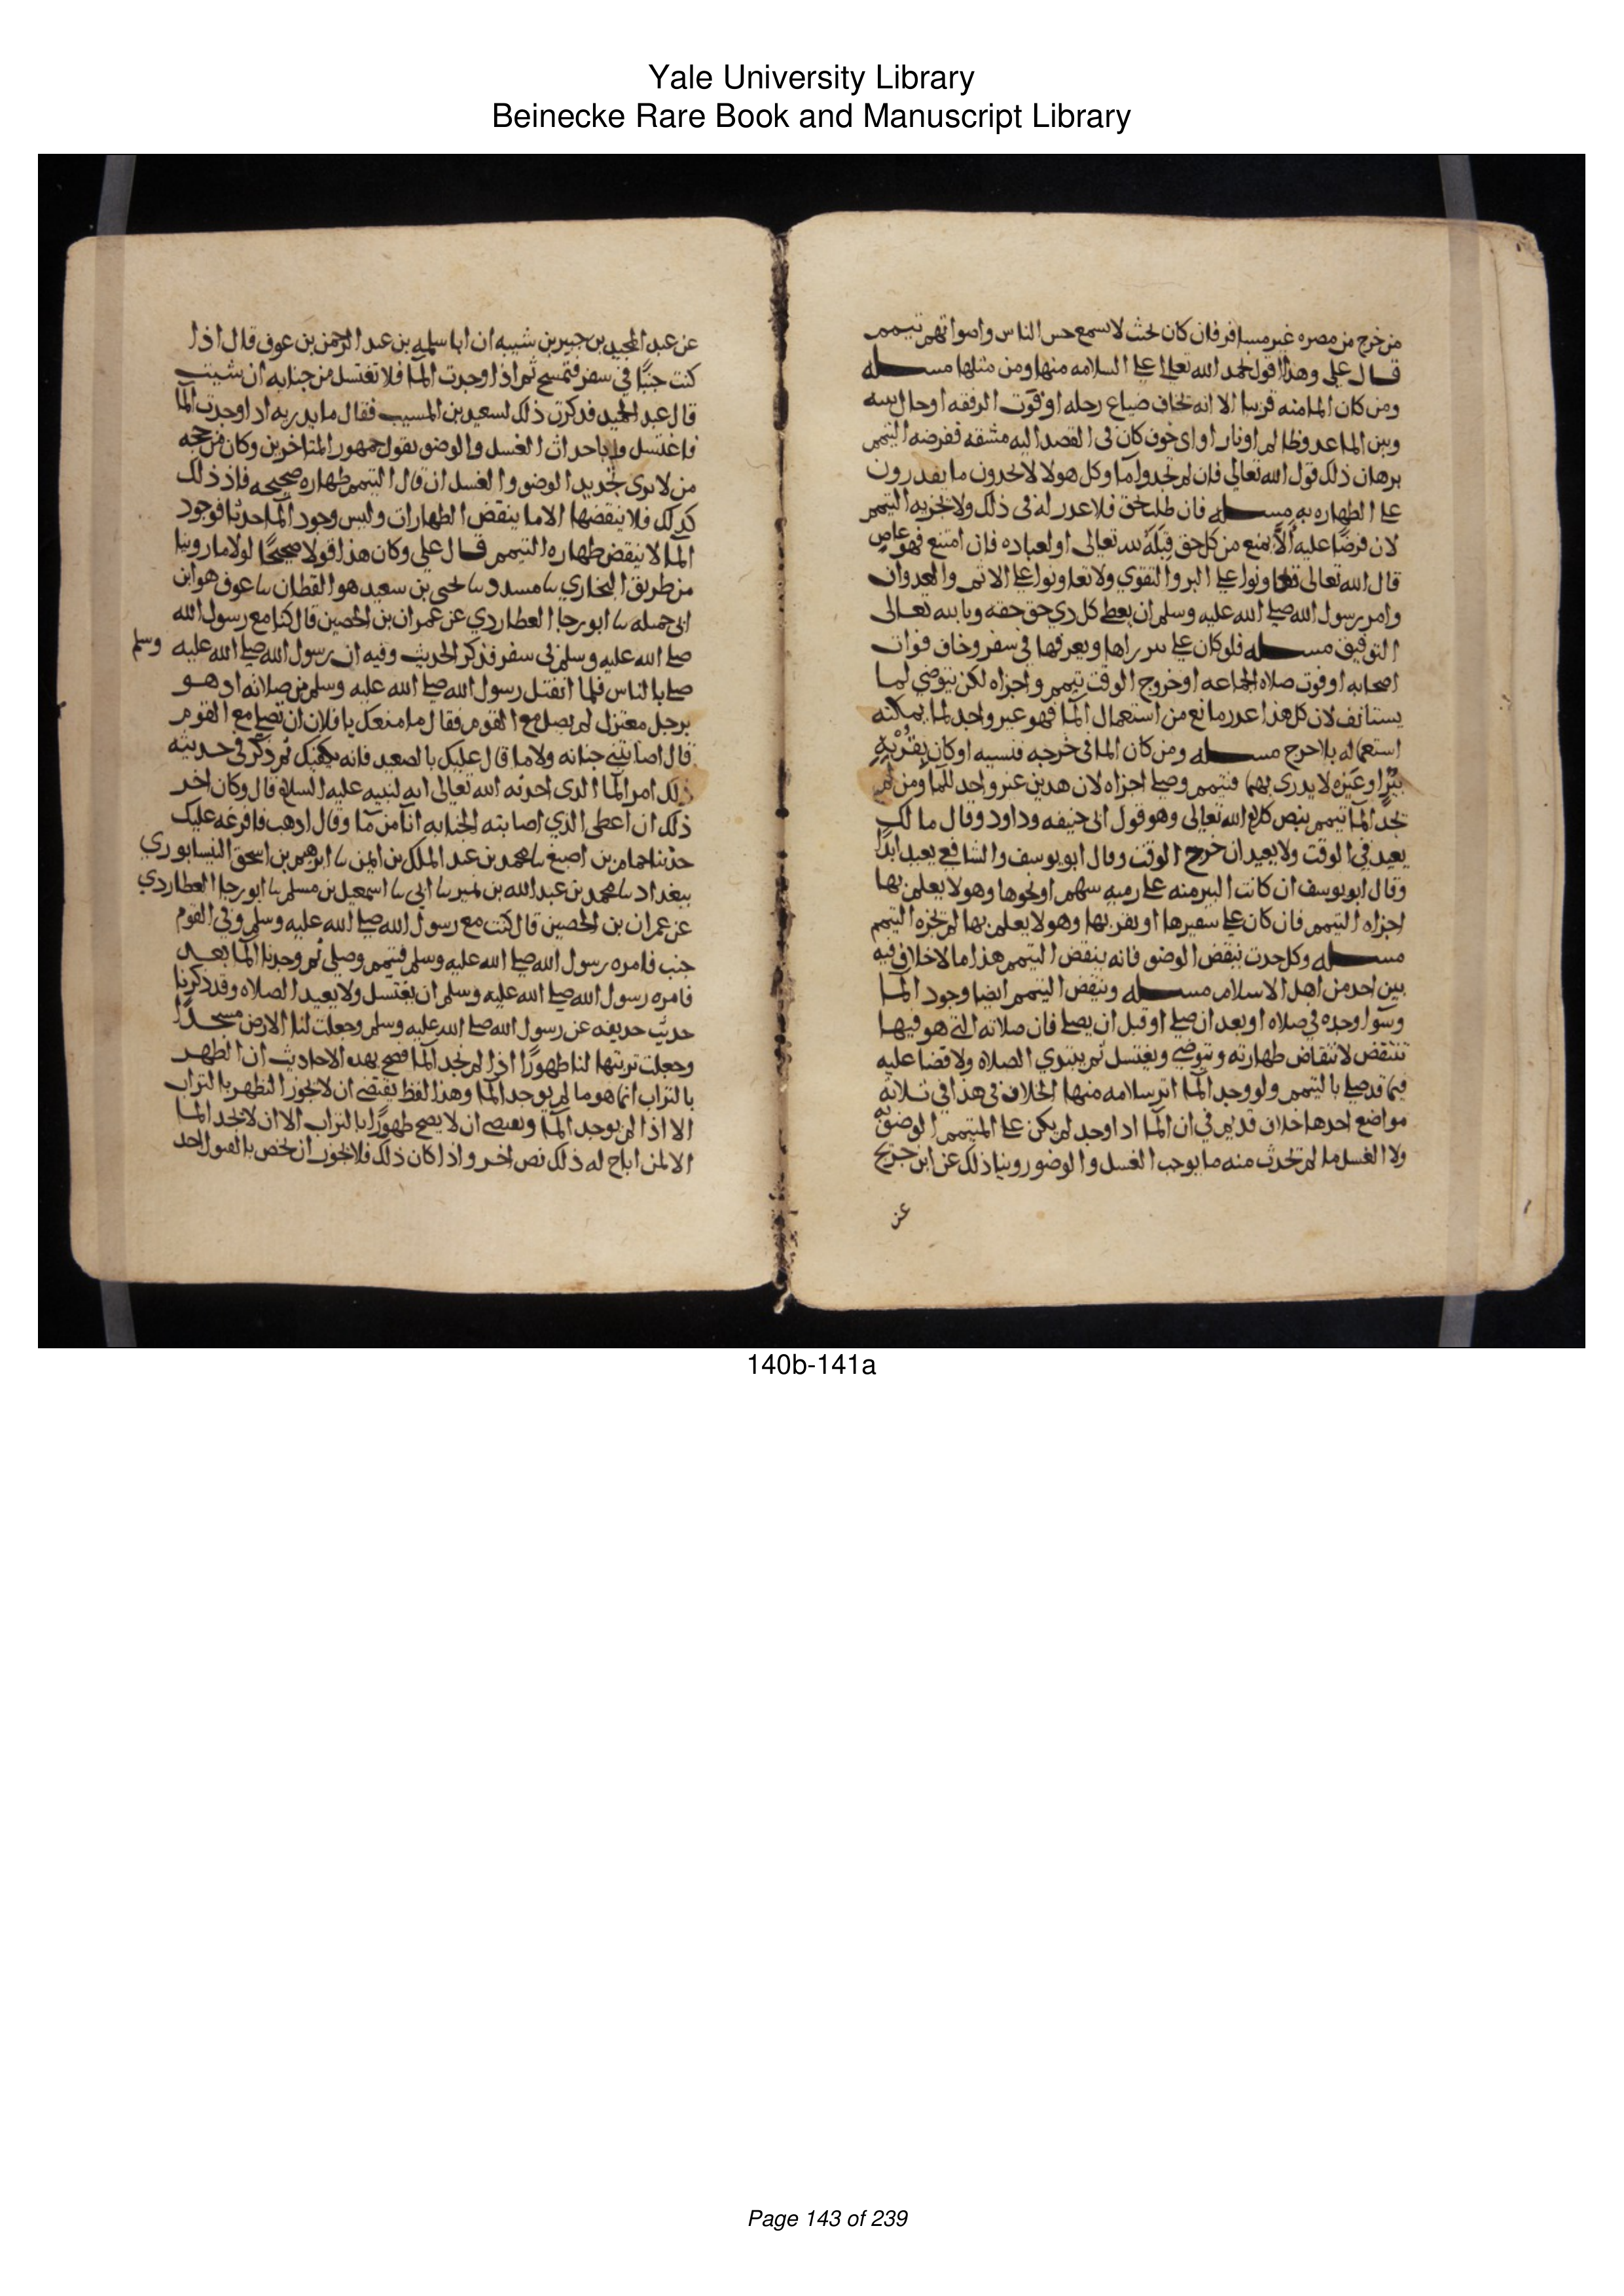 Yale University Library
Beinecke Rare Book and Manuscript Library
من خرج من مصره غير مسافر فان كان بحيث لا يسمع حس الناس واصواتهم تيمم
قال علي وهذا اقول نحمد الله تعالى على السلامه منها ومن مثلها مسله
ومن كان الما منه قريبا الا انه يخاف ضياع رحله او فوت الرفقه او حال بينه
وبين الما عدو ظالم او نار او اي خوف كان في القصد اليه مشقه ففرضه التيمم
برهان ذلك قول الله تعالى فان لم تجدوا ما وكل هولا لا يجدون ما يقدرون
على الطهاره به مسله فان طلب بحق فلا عذر له في ذلك ولا يجزيه التيمم
لان فرضًا عليه الا يمنع من كل حق قبله لله تعالى او لعباده فان امتنع فهو عاص
قال الله تعالى تعاونوا على البر والتقوي ولا تعاونوا على الاثم والعدوان
وامر رسول الله صلى الله عليه وسلم ان يعطى كل ذي حق حقه وبالله تعالى
التوفيق مسله فلو كان على بير يراها ويعرفها في سفر وخاف فوات
اصحابه او فوت صلاه الجماعه او خروج الوقت تيمم واجزاه لكن يتوضي لما
يستانف لان كل هذا عذر مانع من استعمال الما فهو غير واجد لما يمكنه
استعماله بلا حرج مسله ومن كان الما في خرجه فنسيه او كان بقربه
بئر او غيره لا يدري بها فتيمم وصلى اجزاه لان هذين غير واجد للما ومن لم
يجد الما تيمم بنص كلام الله تعالى وهو قول ابي حنيفه وداود وقال مالك
يعيد في الوقت ولا يعيد ان خرج الوقت وقال ابو يوسف والشافعي يعيد ابدًا
وقال ابو يوسف ان كانت البير منه على رميه سهم او نحوها وهو لا يعلم بها
اجزاه التيمم فان كان على شفيرها او بقربها وهو لا يعلم بها لم يجزه التيمم
مسله وكل حدث ينقض الوضو فانه ينقض التيمم هذا ما لا خلاف فيه
بين احد من اهل الاسلام مسله وينقض التيمم ايضا وجود الما
وسوا وجده في صلاه او بعد ان صلى او قبل ان يصلي فان صلاته التي هو فيها
تنتقض لانتقاض طهارته ويتوضي ويغتسل ثم يبتدي الصلاه ولا قضا عليه
فيما قد صلى بالتيمم ولو وجد الما اثر سلامه منها الخلاف في هذا في ثلاثه
مواضع احدها خلاف قديم في ان الما اذا وجد لم يكن على المتيمم الوضو به
ولا الغسل ما لم يحدث منه ما يوجب الغسل والوضو روينا ذلك عن ابن جريج
عن
عن عبد الحميد بن جبير بن شيبه ان ابا سلمه بن عبد الرحمن بن عوف قال اذا
كنت جنبًا في سفر فتمسح ثم اذا وجدت الما فلا تغتسل من جنابه ان شيت
قال عبد الحميد فذكرت ذلك لسعيد بن المسيب فقال ما يدريه اذا وجدت الما
فاغتسل وباحداث الغسل والوضو يقول جمهور المتاخرين وكان من حجه
من لا يرى تجديد الوضو والغسل ان قال التيمم طهاره صحيحه فاذ ذلك
كذلك فلا ينقضها الا ما ينقض الطهارات وليس وجود الما حدثا فوجود
الما لا ينقض طهاره التيمم قال علي وكان هذا قولا صحيحًا لولا ما روينا
من طريق البخاري نا مسدد نا يحيى بن سعيد هو القطان نا عوف هو ابن
ابي جميله نا ابو رجا العطاردي عن عمران بن الحصين قال كنا مع رسول الله
صلى الله عليه وسلم في سفر فذكر الحديث وفيه ان رسول الله صلى الله عليه وسلم
صلى بالناس فلما انفتل رسول الله صلى الله عليه وسلم من صلاته اذ هو
برجل معتزل لم يصل مع القوم فقال ما منعك يا فلان ان تصلي مع القوم
قال اصابتني جنابه ولا ما قال عليك بالصعيد فانه يكفيك ثم ذكر في حديثه
ذلك امر الما الذي احدثه الله تعالى ايه لنبيه عليه السلام قال وكان اخر
ذلك ان اعطى الذي اصابته الجنابه انا من ما وقال اذهب فافرغه عليك
حدثنا حمام بن اصبغ نا محمد بن عبد الملك بن ايمن نا ابرهيم بن اسحق النيسابوري
ببغداد نا محمد بن عبد الله بن نمير نا ابي نا اسمعيل بن مسلم نا ابو رجا العطاردي
عن عمران بن الحصين قال كنت مع رسول الله صلى الله عليه وسلم وفي القوم
جنب فامره رسول الله صلى الله عليه وسلم فتيمم وصلى ثم وجدنا الما بعد
فامره رسول الله صلى الله عليه وسلم ان يغتسل ولا يعيد الصلاه وقد ذكرنا
حديث حذيفه عن رسول الله صلى الله عليه وسلم وجعلت لنا الارض مسجدًا
وجعلت تربتها لنا طهورًا اذا لم نجد الما فصح بهذه الاحاديث ان الطهر
بالتراب انما هو ما لم يوجد الما وهذا لفظ يقتضي ان لا يجوز التطهر بالتراب
الا اذا لم يوجد الما ويقتضي ان لا يصح طهورًا بالتراب الا ان لا يجد الما
الا لمن اباح له ذلك نص اخر واذا كان ذلك فلا يجوز ان يخص بالقول احد
140b-141a
Page 143 of 239